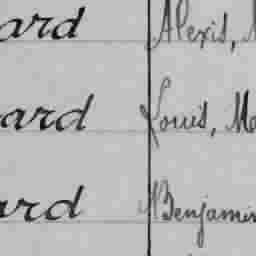 ard Alexis, M
ard Louis, Ma
ard Benjamin